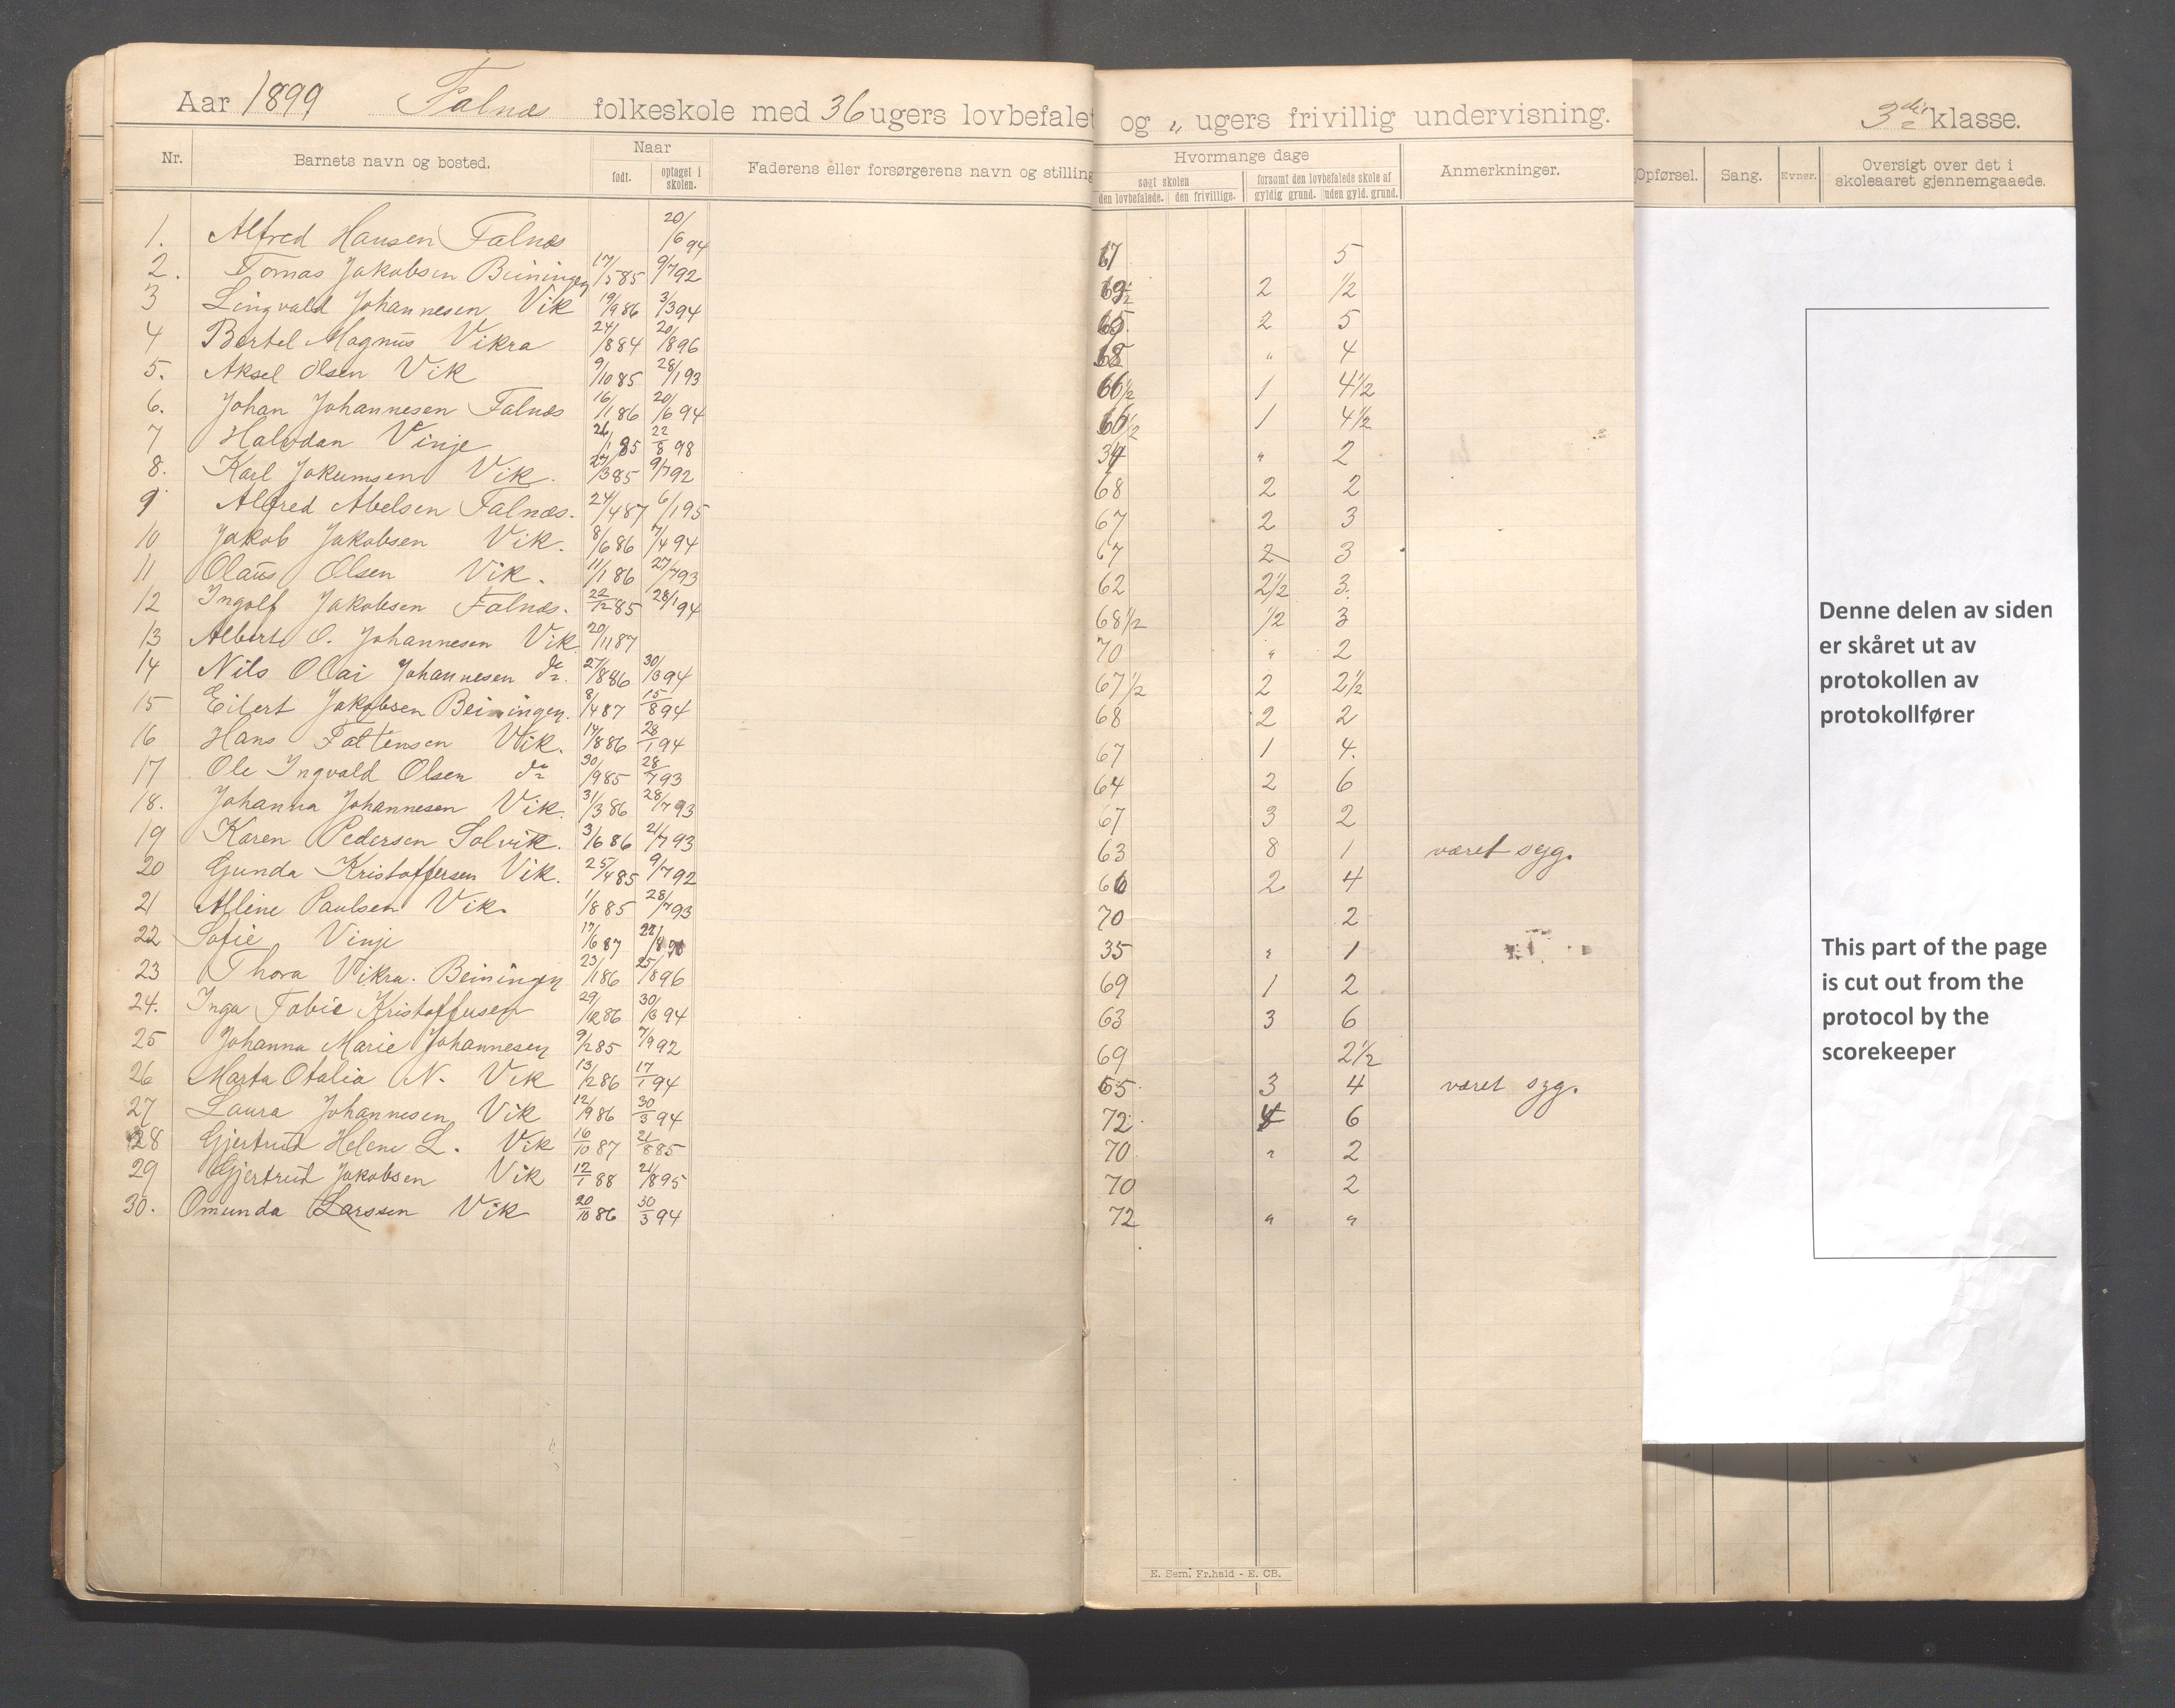 Aar 1899 Falnæs folkeskole med 36 ugers lovbefalet og „ ugers frivillig undervisning. 3die klasse.
Nr. Barnets navn og bosted. Naar født. optaget i skolen. Faderens eller forsørgerens navn og stilling
Hvormange dage søgt skolen den lovbefalede. den frivillige. forsømt den lovbefalede skole af gyldig grund. uden gyld. grund. Anmerkninger.
Opførsel. Sang. Evner. Oversigt over det i skoleaaret gjennemgaaede.
1. Alfred Hansen Falnæs 20/6 94 67 5
2. Tomas Jakobsen Beiningen 17/5 85 9/7 92 69 1/2 2 1/2
3 Lingvald Johannesen Vik 19/9 86 3/3 94 65 2 5
4 Bertel Magnus Vikra 24/8 84 20/8 96 68 „ 4
5. Aksel Olsen Vik 9/10 85 28/1 93 66 1/2 1 4 1/2
6. Johan Johannesen Falnæs 16/1 86 20/6 94 66 1/2 1 4 1/2
7 Halvdan Vinje 26/1 85 22/8 98 34 „ 2
8. Karl Jokumsen Vik. 27/3 85 9/7 92 68 2 2
9 Alfred Abelsen Falnæs. 24/4 87 6/1 95 67 2 3
10 Jakob Jakobsen Vik. 8/6 86 7/4 94 67 2 3
11 Olaus Olsen Vik. 11/1 86 27/7 93 62 2 1/2 3.
12 Ingolf Jakobsen Falnæs. 22/12 85 28/1 94 68 1/2 1/2 3
13 Albert O. Johannesen Vik 20/11 87 70 „ 2
14 Nils Olai Johannesen do. 27/8 86 30/3 94 67 1/2 2 2 1/2
15 Eilert Jakobsen Beiningen. 8/4 87 15/8 94 68 2 2
16 Hans Vik. 14/8 86 28/1 94 67 1 4.
17 Ole Ingvald Olsen do 30/9 85 28/7 93 64 2 6
18. Johanna Johannesen Vik. 31/3 86 28/7 93 67 3 2
19 Karen Pedersen Solvik. 3/6 86 21/7 93 63 8 1 været syg.
20 Gunda Kristoffersen Vik. 25/4 85 9/7 92 66 2 4
21 Alline Paulsen Vik. 1/8 85 28/7 93 70 2
22 Sofie Vinje 17/6 87 22/8 35 „ 1
23 Thora Vikra. Beiningen 23/1 86 25/8 96 69 1 2
24. Inga Tobie Kristoffersen 29/12 86 30/3 94 63 3 6
25 Johanna Marie Johannesen 9/2 85 7/9 92 69 2 1/2
26 Marta Otalia N. Vik 13/2 86 17/1 94 65 3 4 været syg.
27 Laura Johannesen Vik 12/9 86 30/3 94 72 6
28 Gjertrud Helene L. Vik 16/10 87 21/8 85 70 „ 2
29 Gjertrud Jakobsen Vik 12/1 88 21/8 95 70 2
30. Omunda Larssen Vik 20/10 86 30/3 94 72 „ „
E. Sem, Fr.hald - E. CB.
Denne delen av siden
er skåret ut av
protokollen av
protokollfører
This part of the page
is cut out from the
protocol by the
scorekeeper